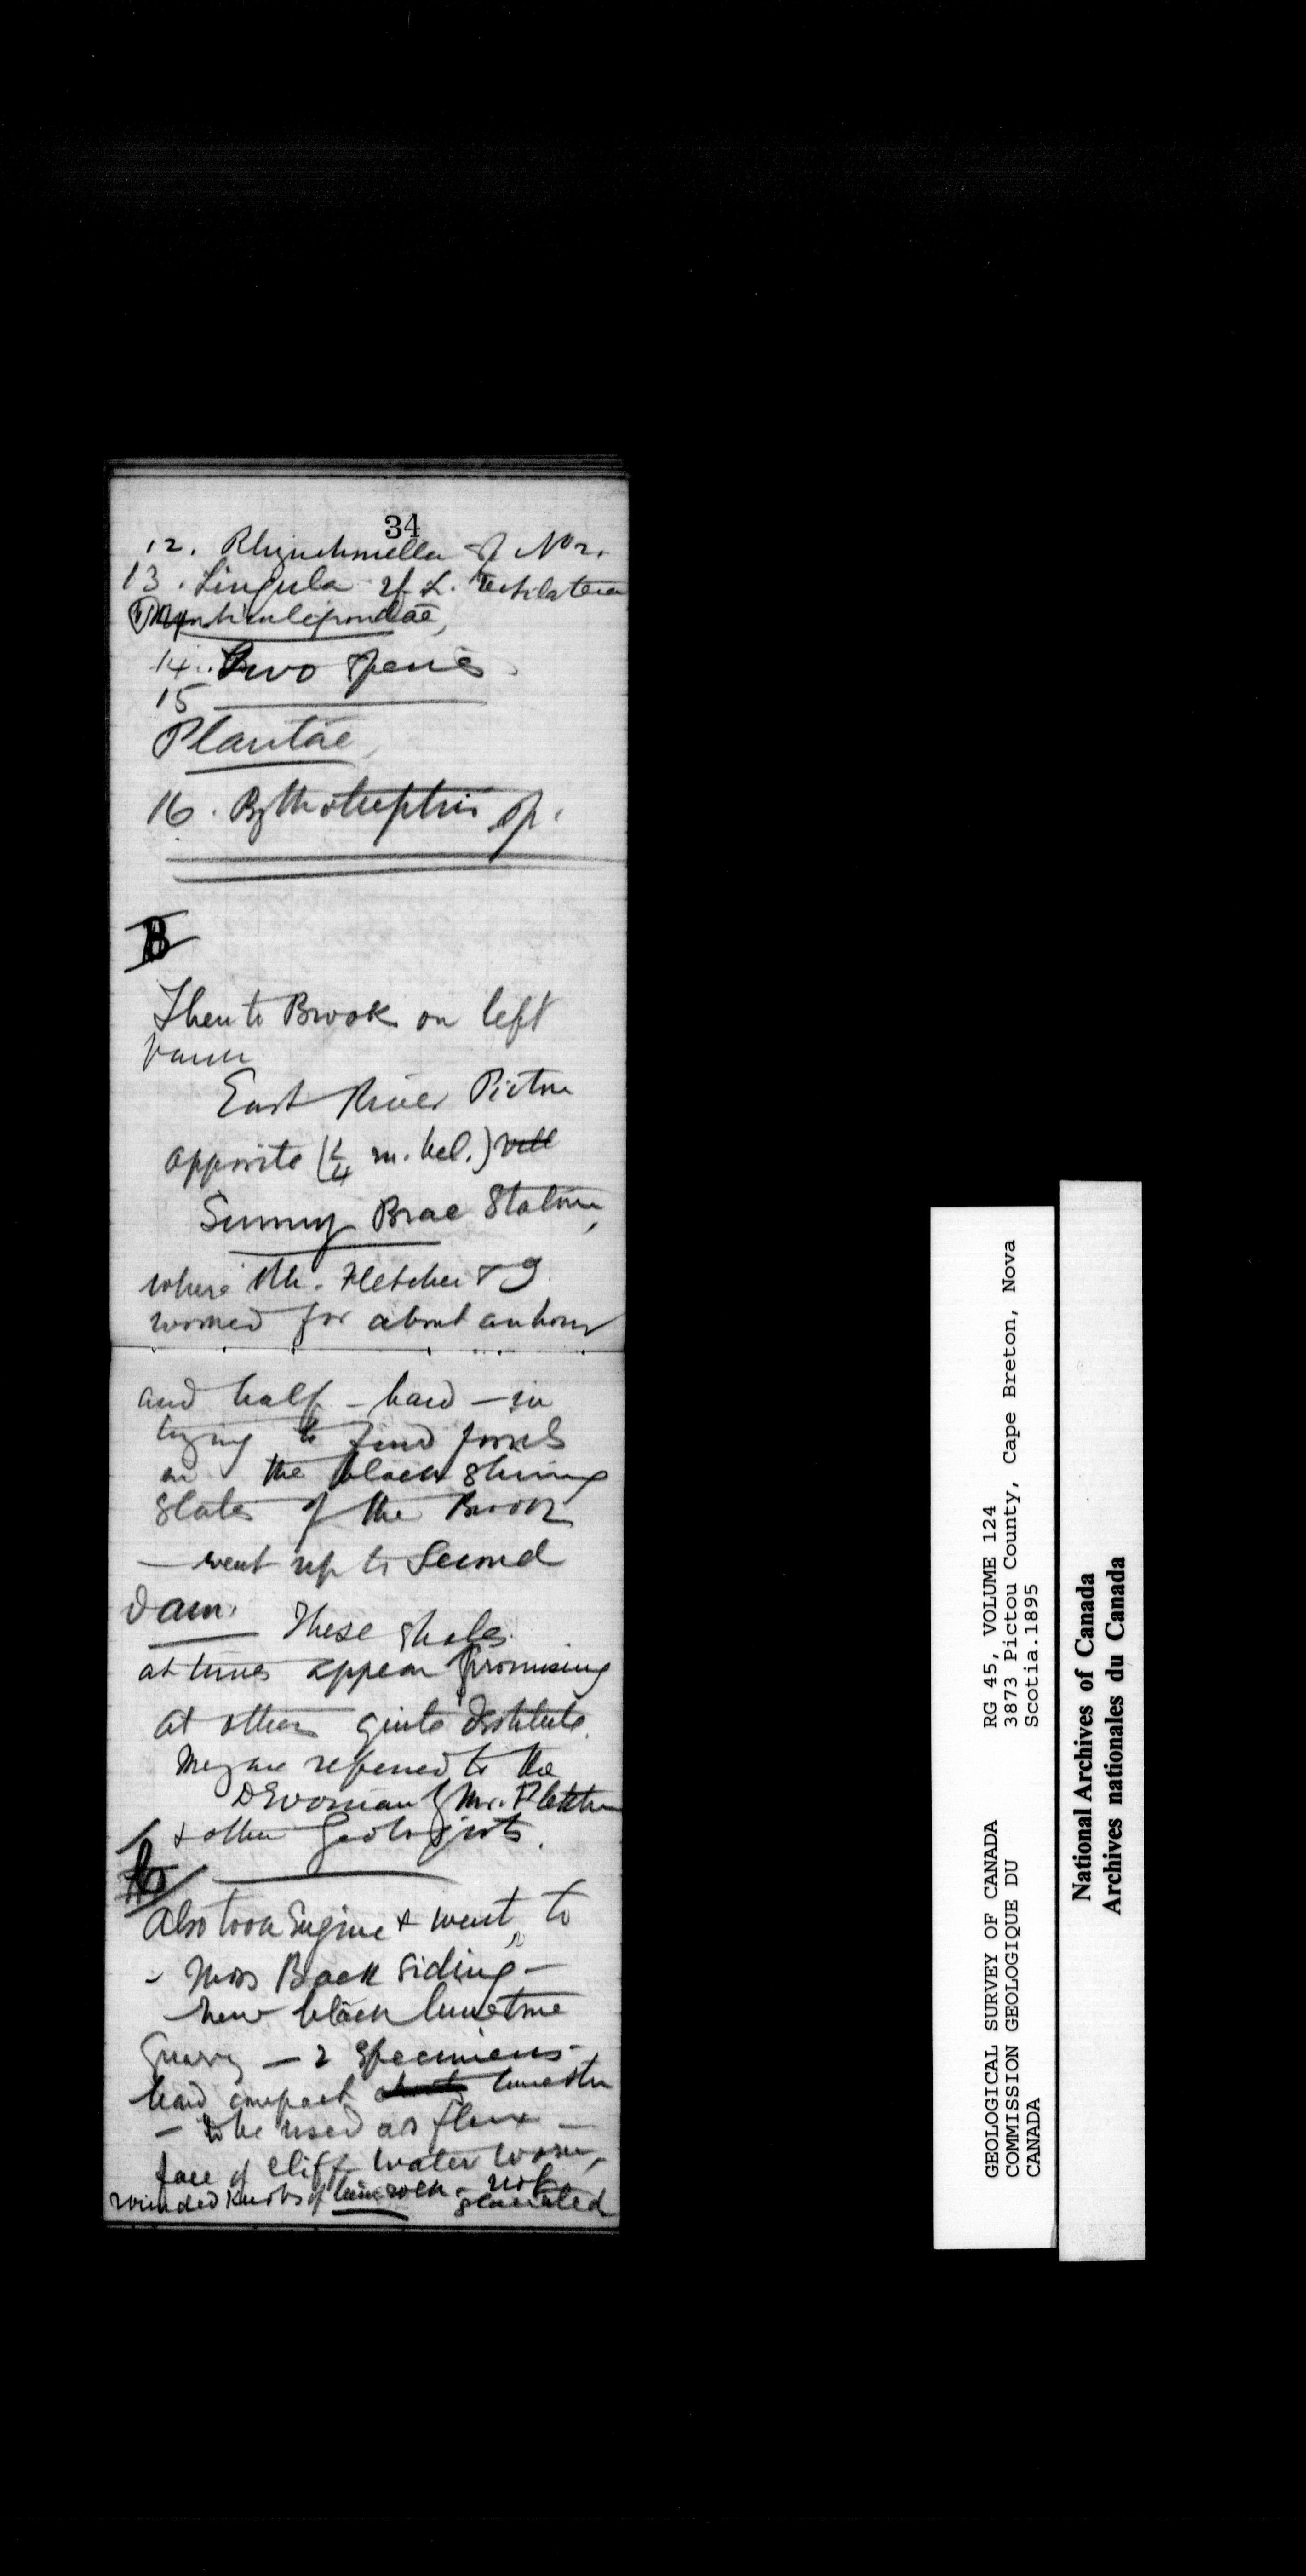 34
12. Rhynchonella cf No 2.
13. Lingula cf. L. rectilatera
Monticuliporidae,
14. Two species
15
Plantae,
16. Bythotrephis sp.
B
Then to Brook on left
East River Pictou
opposite (1/4 m. bel.) vill
Sunny Brae Station,
where Mr. Fletcher & I
worked for about an hour
and half - hard - in
trying to find fossils
in the black shining
slates of the Brook
- went up to Second
Dam. These shales
at times appear promising
at others quite destitute.
They are referred to the
Devonian by Mr. Fletcher
& other Geologists.
Also took Engine & went to
- Black siding -
new black limestone
Quarry - 2 specimens -
hard compact limestone
- to be used as flux -
face of cliff water worn,
rounded knobs of limerock - not
glaciated
GEOLOGICAL SURVEY OF CANADA
COMMISSION GEOLOGIQUE DU
CANADA
RG 45, VOLUME 124
3873 Pictou County, Cape Breton, Nova
Scotia.1895
National Archives of Canada
Archives nationales du Canada